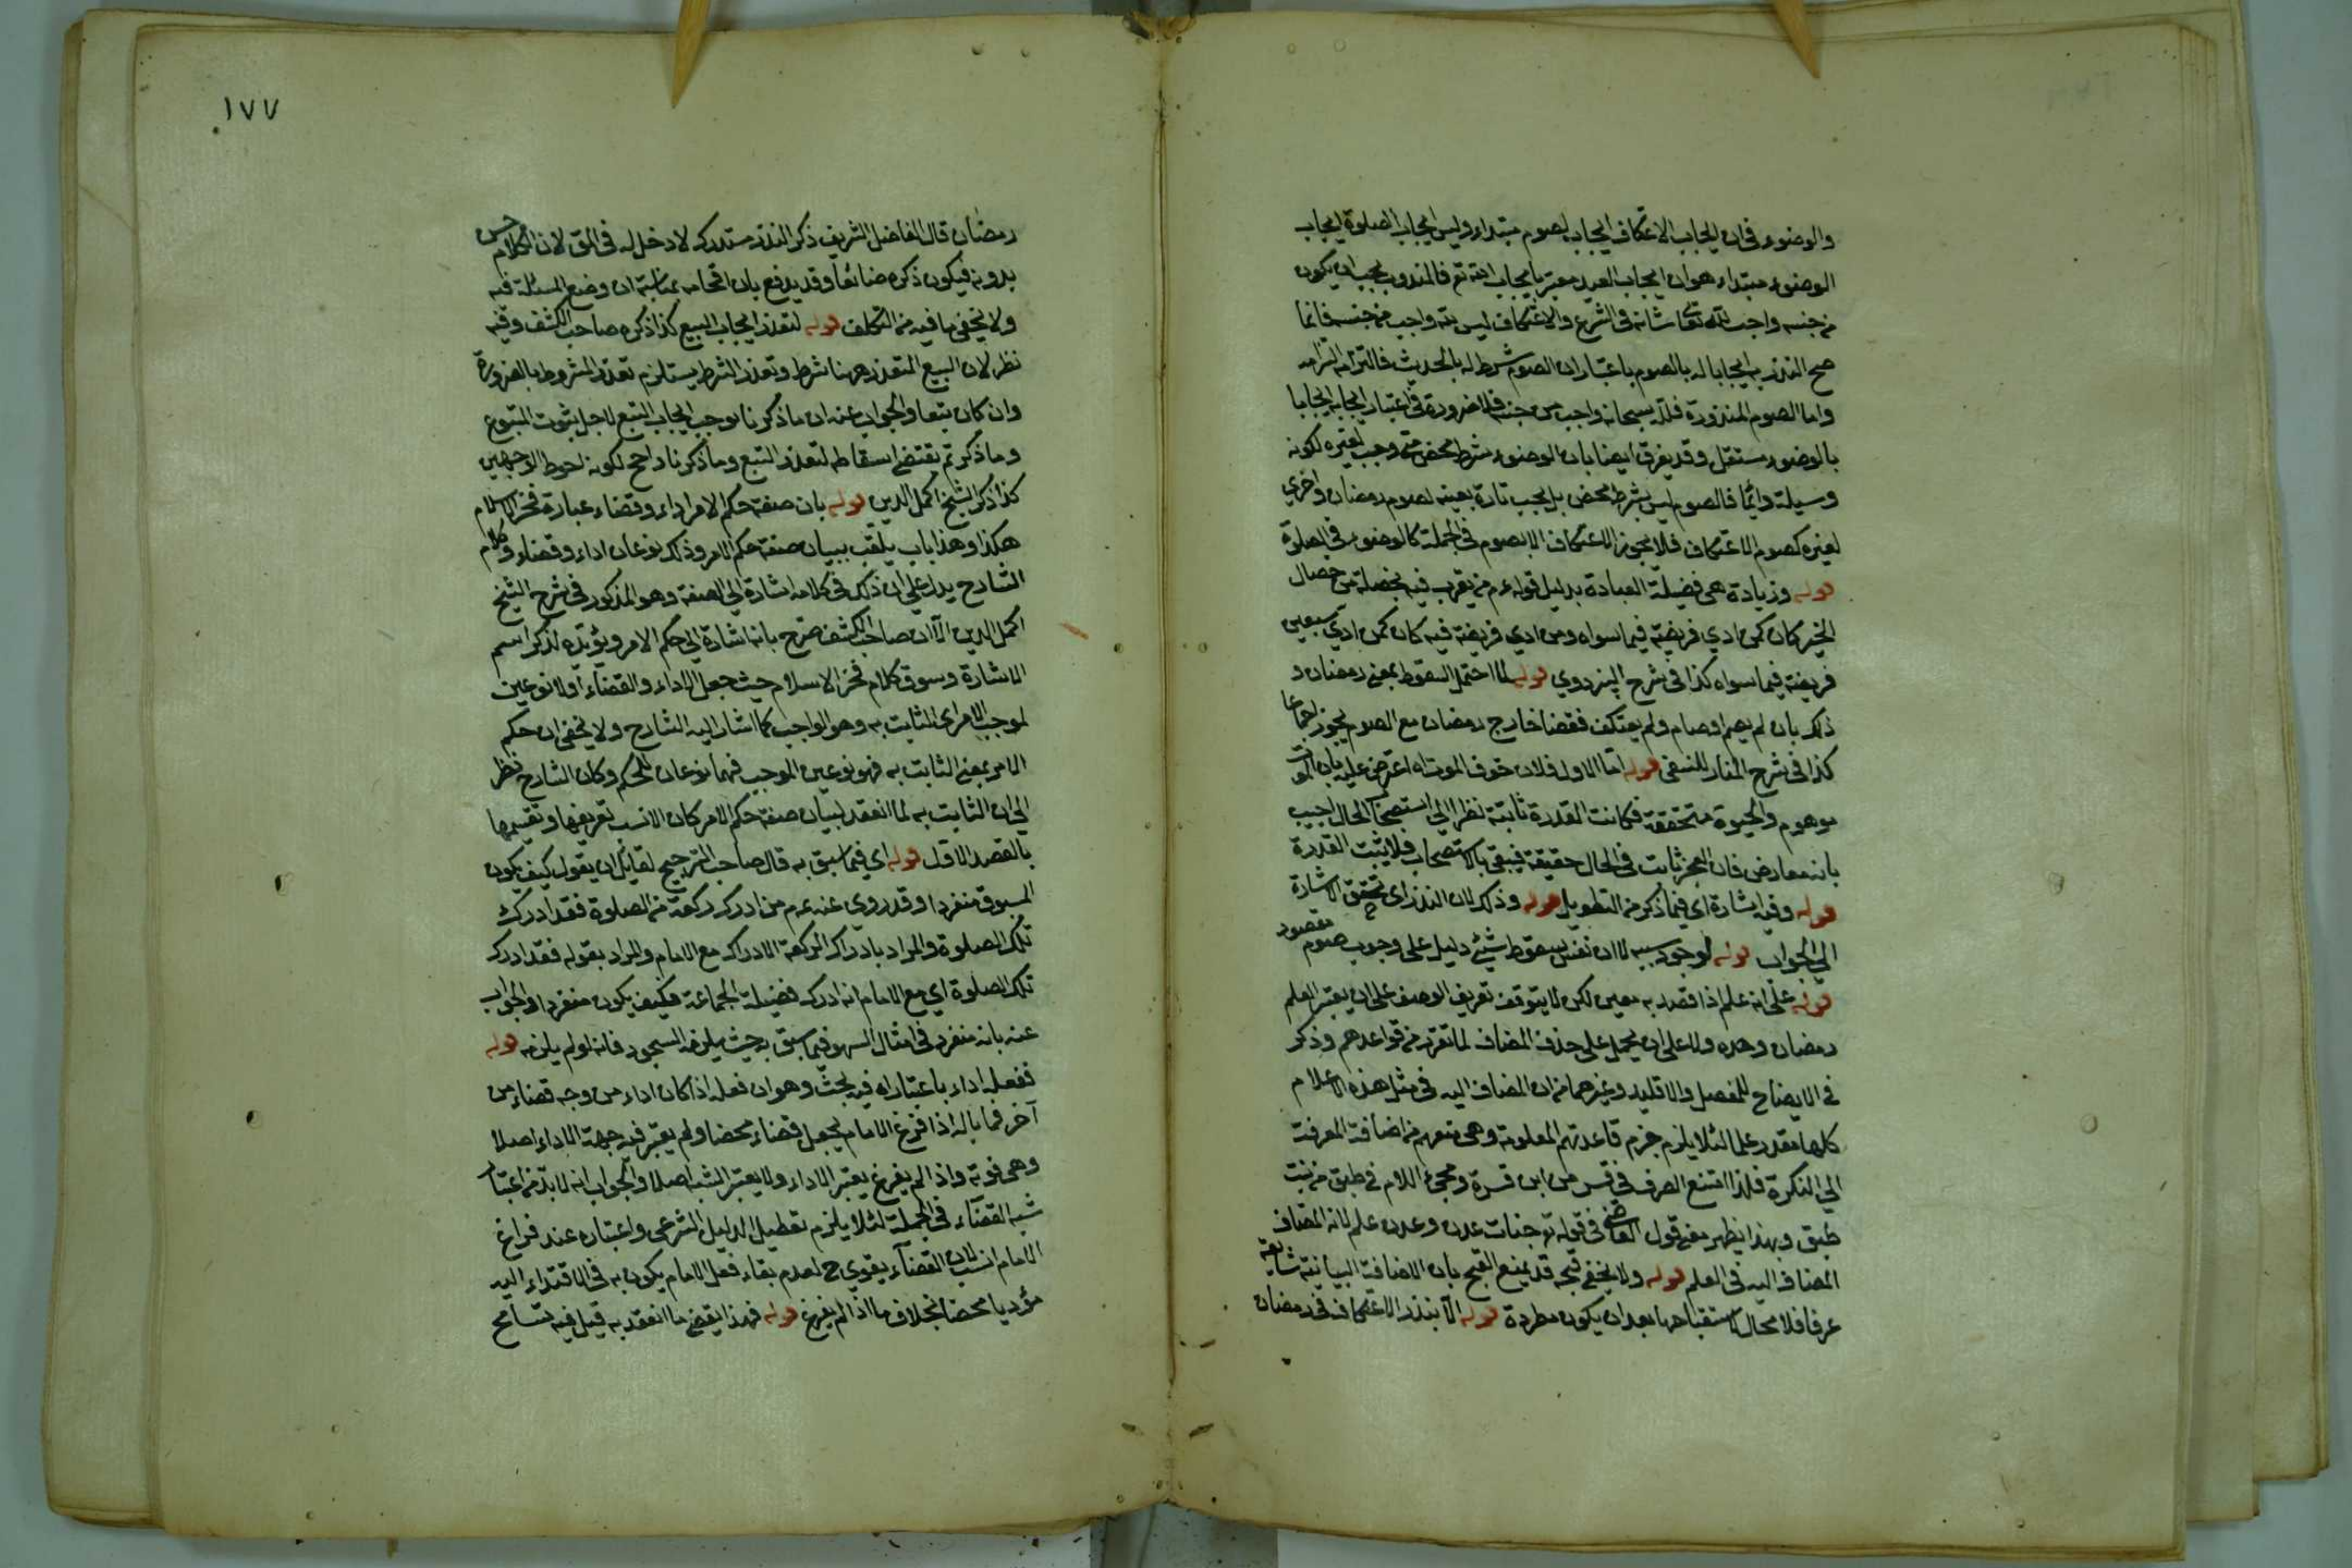 والوضوء في ان ايجاب الاعتكاف ايجاب لصوم مبتداء وليس ايجاب الصلوة ايجاب
الوضوء مبتداء هو ان ايجاب العبد معتبر بايجاب الله تع فالمندوب يجب ان يكون
من جنسه واجب لله تعا شانه في الشرع والاعتكاف ليس لله واجب من جنسه فانما
صح النذر به ايجابا له بالصوم باعتبار ان الصوم شرط له بالحديث فالتزامه التزامه
واما الصوم المنذورة فلله سبحانه واجب من جنسه فلا ضرورة في اعتبار ايجابه ايجابا
بالوضوء مستقل وقد يفرق ايضا بان الوضوء شرط محض متى وجب لغيره لكونه
وسيلة دائما فالصوم ليس بشرط محض بل يجب تارة بعينه لصوم رمضان واخرى
لغيره كصوم الاعتكاف فلا يجوز الاعتكاف الا بصوم في الجملة كالوضوء في الصلوة
قوله وزيادة هي فضيلة العبادة بدليل قوله عم من تقرب فيه بخصلة من خصال
الخير كان كمن ادي فريضة فيما سواه ومن ادي فريضة فيه كان كمن ادي سبعين
فريضة فيما سواه كذا في شرح البزدوي قوله لما احتمل السقوط بمعنى رمضان و
ذلك بان لم يصم او صام ولم يعتكف فقضا خارج رمضان مع الصوم يجوز اجماعا
كذا في شرح المنار للنسفي قوله اما الاول فلان خوف الموت اه اعترض عليه بان الموت
موهوم والحيوة متحققة فكانت القدرة ثابتة نظرا الي استصحاب الحال اجيب
بانه معارض فان العجز ثابت في الحال حقيقة فيبقى بالاستصحاب فلا يثبت القدرة
قوله وفيه اشارة اي فيما ذكر من التطويل قوله وذلك لان النذر اي تحقق الاشارة
الي الجواب قوله لوجود سببه لا ان نفس سقوط شيئ دليل على وجوب صوم مقصود
قوله على انه علم اذا قصد به معين لكن لا يتوقف تعريف الوصف على ان يعتبر العلم
رمضان وحده ولا على ان يحمل على حذف المضاف لما تقرر من قواعدهم وذكر
في الايضاح للمفصل والاقليد وغيرهما من ان المضاف اليه في مثل هذه الاعلام
كلها مقدر علما لئلا يلزم خرم قاعدتهم المعلومة وهي منعهم من اضافة المعرفة
الي النكرة فلهذا امتنع الصرف في قس من ابن قسرة ومجئ اللام في طبق من بنت
طبق وبهذا يظهر معنى قول القاضي في قوله تع جنات عدن وعدن علم لانه المضاف
المضاف اليه في العلم قوله ولا يخفى قبحه قد يمنع القبح بان الاضافة البيانية شايعة
عرفا فلا مجال لاستقباحها بعد ان يكون مطردة قوله الا بنذر الاعتكاف في رمضان
١٧٧
رمضان قال الفاضل الشريف ذكر النذر مستدرك لا دخل له في المق لان الكلام حسن
بدونه فيكون ذكره ضائعا وقد يدفع بان اقحامه بمناسبة ان وضع المسئلة فيه
ولا يخفى ما فيه من التكلف قوله لتعذر ايجاب البيع كذا ذكره صاحب الكشف وفيه
نظر لان البيع المتعذر ههنا شرط وتعذر الشرط يستلزم تعذر المشروط بالضرورة
وان كان تبعا والجواب عنه ان ما ذكرنا يوجب ايجاب التبع لاجل ثبوت المتبوع
وما ذكرتم يقتضي اسقاطه لتعذر التبع وما ذكرنا راجح لكونه احوط الوجهين
كذا ذكر الشيخ اكمل الدين قوله بان صفة حكم الامر اداء وقضاء عبارة فخر الاسلام
هكذا وهذا باب يلقب ببيان صفة حكم الامر وذلك نوعان اداء وقضاء وكلام
الشارح يدل على ان ذلك في كلامه اشارة الي الصفة وهو المذكور في شرح الشيخ
اكمل الدين الا ان صاحب الكشف صرح بانه اشارة الي حكم الامر ويؤيده تذكر اسم
الاشارة وسوق كلام فخر الاسلام حيث جعل الاداء والقضاء اولا نوعين
لموجب الامر اي الثابت به وهو الواجب كما اشار اليه الشارح ولا يخفى ان حكم
الامر بمعنى الثابت به فهو نوعين الموجب فهما نوعان للحكم وكان الشارح نظر
الي ان الثابت به لما انعقد لبيان صفة حكم الامر كان الانسب تعريفها وتقسيمها
بالقصد الاول قوله اي فيما سبق به قال صاحب الترجيح لقائل ان يقول كيف يكون
المسبوق منفردا وقد روي عنه عم من ادرك ركعة من الصلوة فقد ادرك
تلك الصلوة والمراد بادراك الركعة الادراك مع الامام والمراد بقوله فقد ادرك
تلك الصلوة اي مع الامام انه ادرك فضيلة الجماعة فكيف يكون منفردا والجواب
عنه بانه منفرد في امثال السهو فيما سبق به حيث يلزمه السجود فانه لو لم يلزمه قوله
ففعله اداء باعتبار اه فيه بحث وهو ان فعله اذا كان اداء من وجه قضاء من
آخر فما باله اذا فرغ الامام يجعل قضاء محضا ولم يعتبر فيه جهة الاداء اصلا
وهي فوته واذا لم يفرغ يعتبر الاداء ولا يعتبر الشبه اصلا والجواب انه لا بد من اعتبار
شبه القضاء في الجملة لئلا يلزم تعطيل الدليل الشرعي واعتباره عند فراغ
الامام انسب لان القضاء يقوي ح لعدم بقاء فعل الامام يكون به في الاقتداء اليه
مؤديا محضا بخلاف ما اذا لم يفرغ قوله فهذا يقضي ما انعقد به قيل فيه تسامح